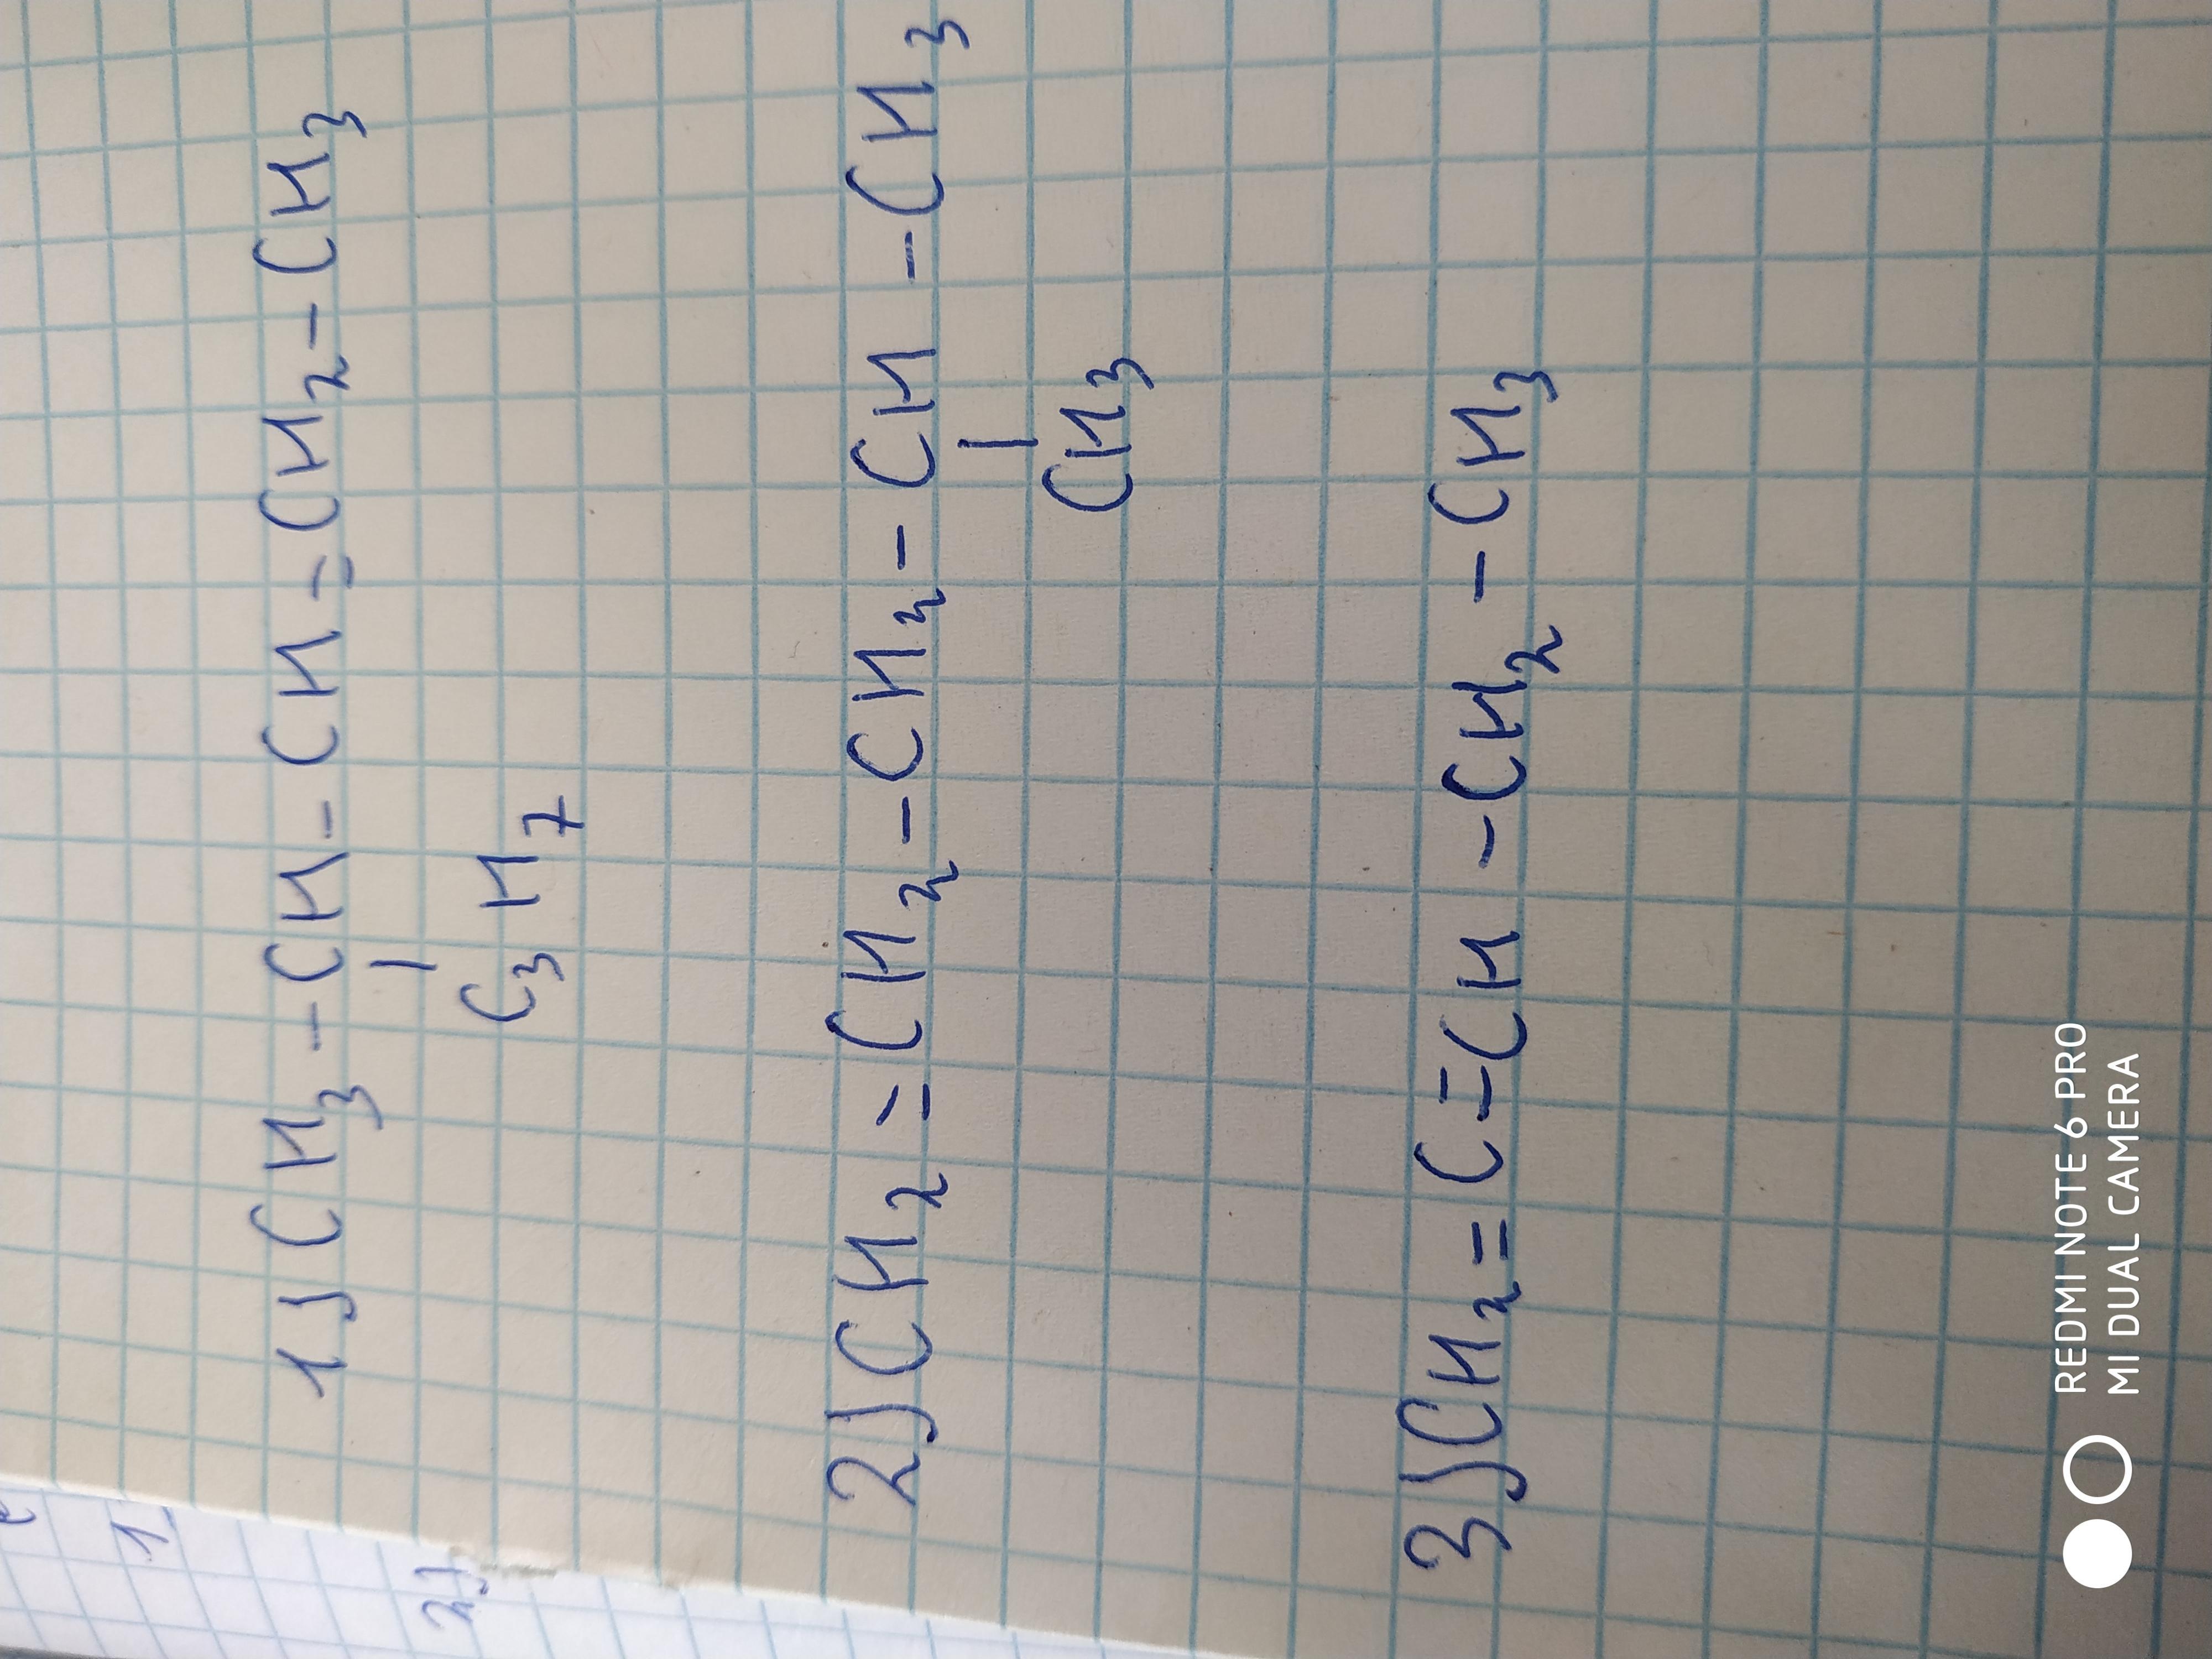 1) CH3-CH-CH=CH2-CH3
|
C3H7
2) CH2=CH2-CH2-CH-CH3
|
CH3
3) CH2=C=CH-CH2-CH3
1
2)
REDMI NOTE 6 PRO
MI DUAL CAMERA